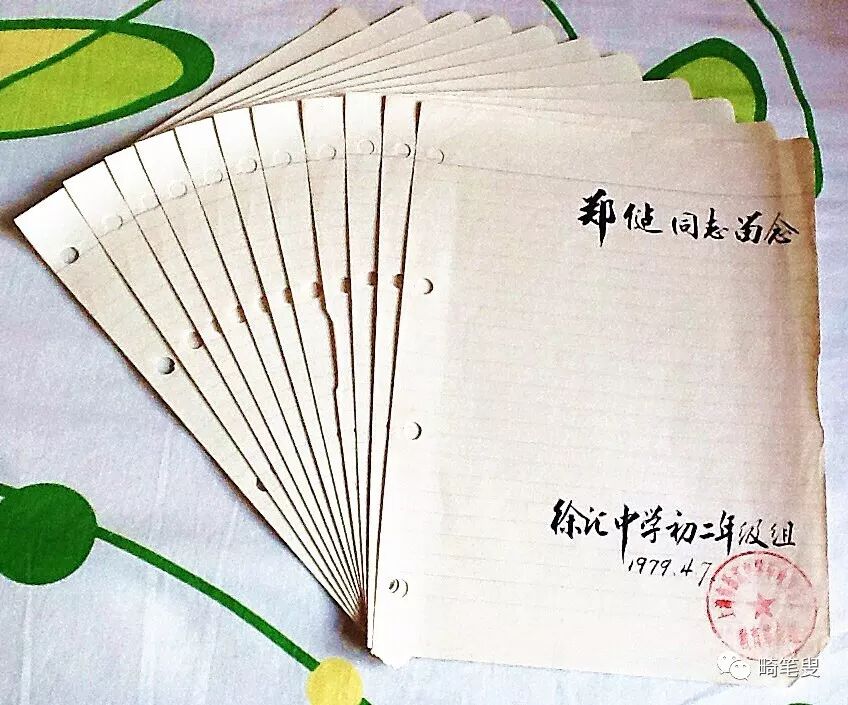 郑健同志留念
徐汇中学初二年级组
1979.4.7
畸笔叟